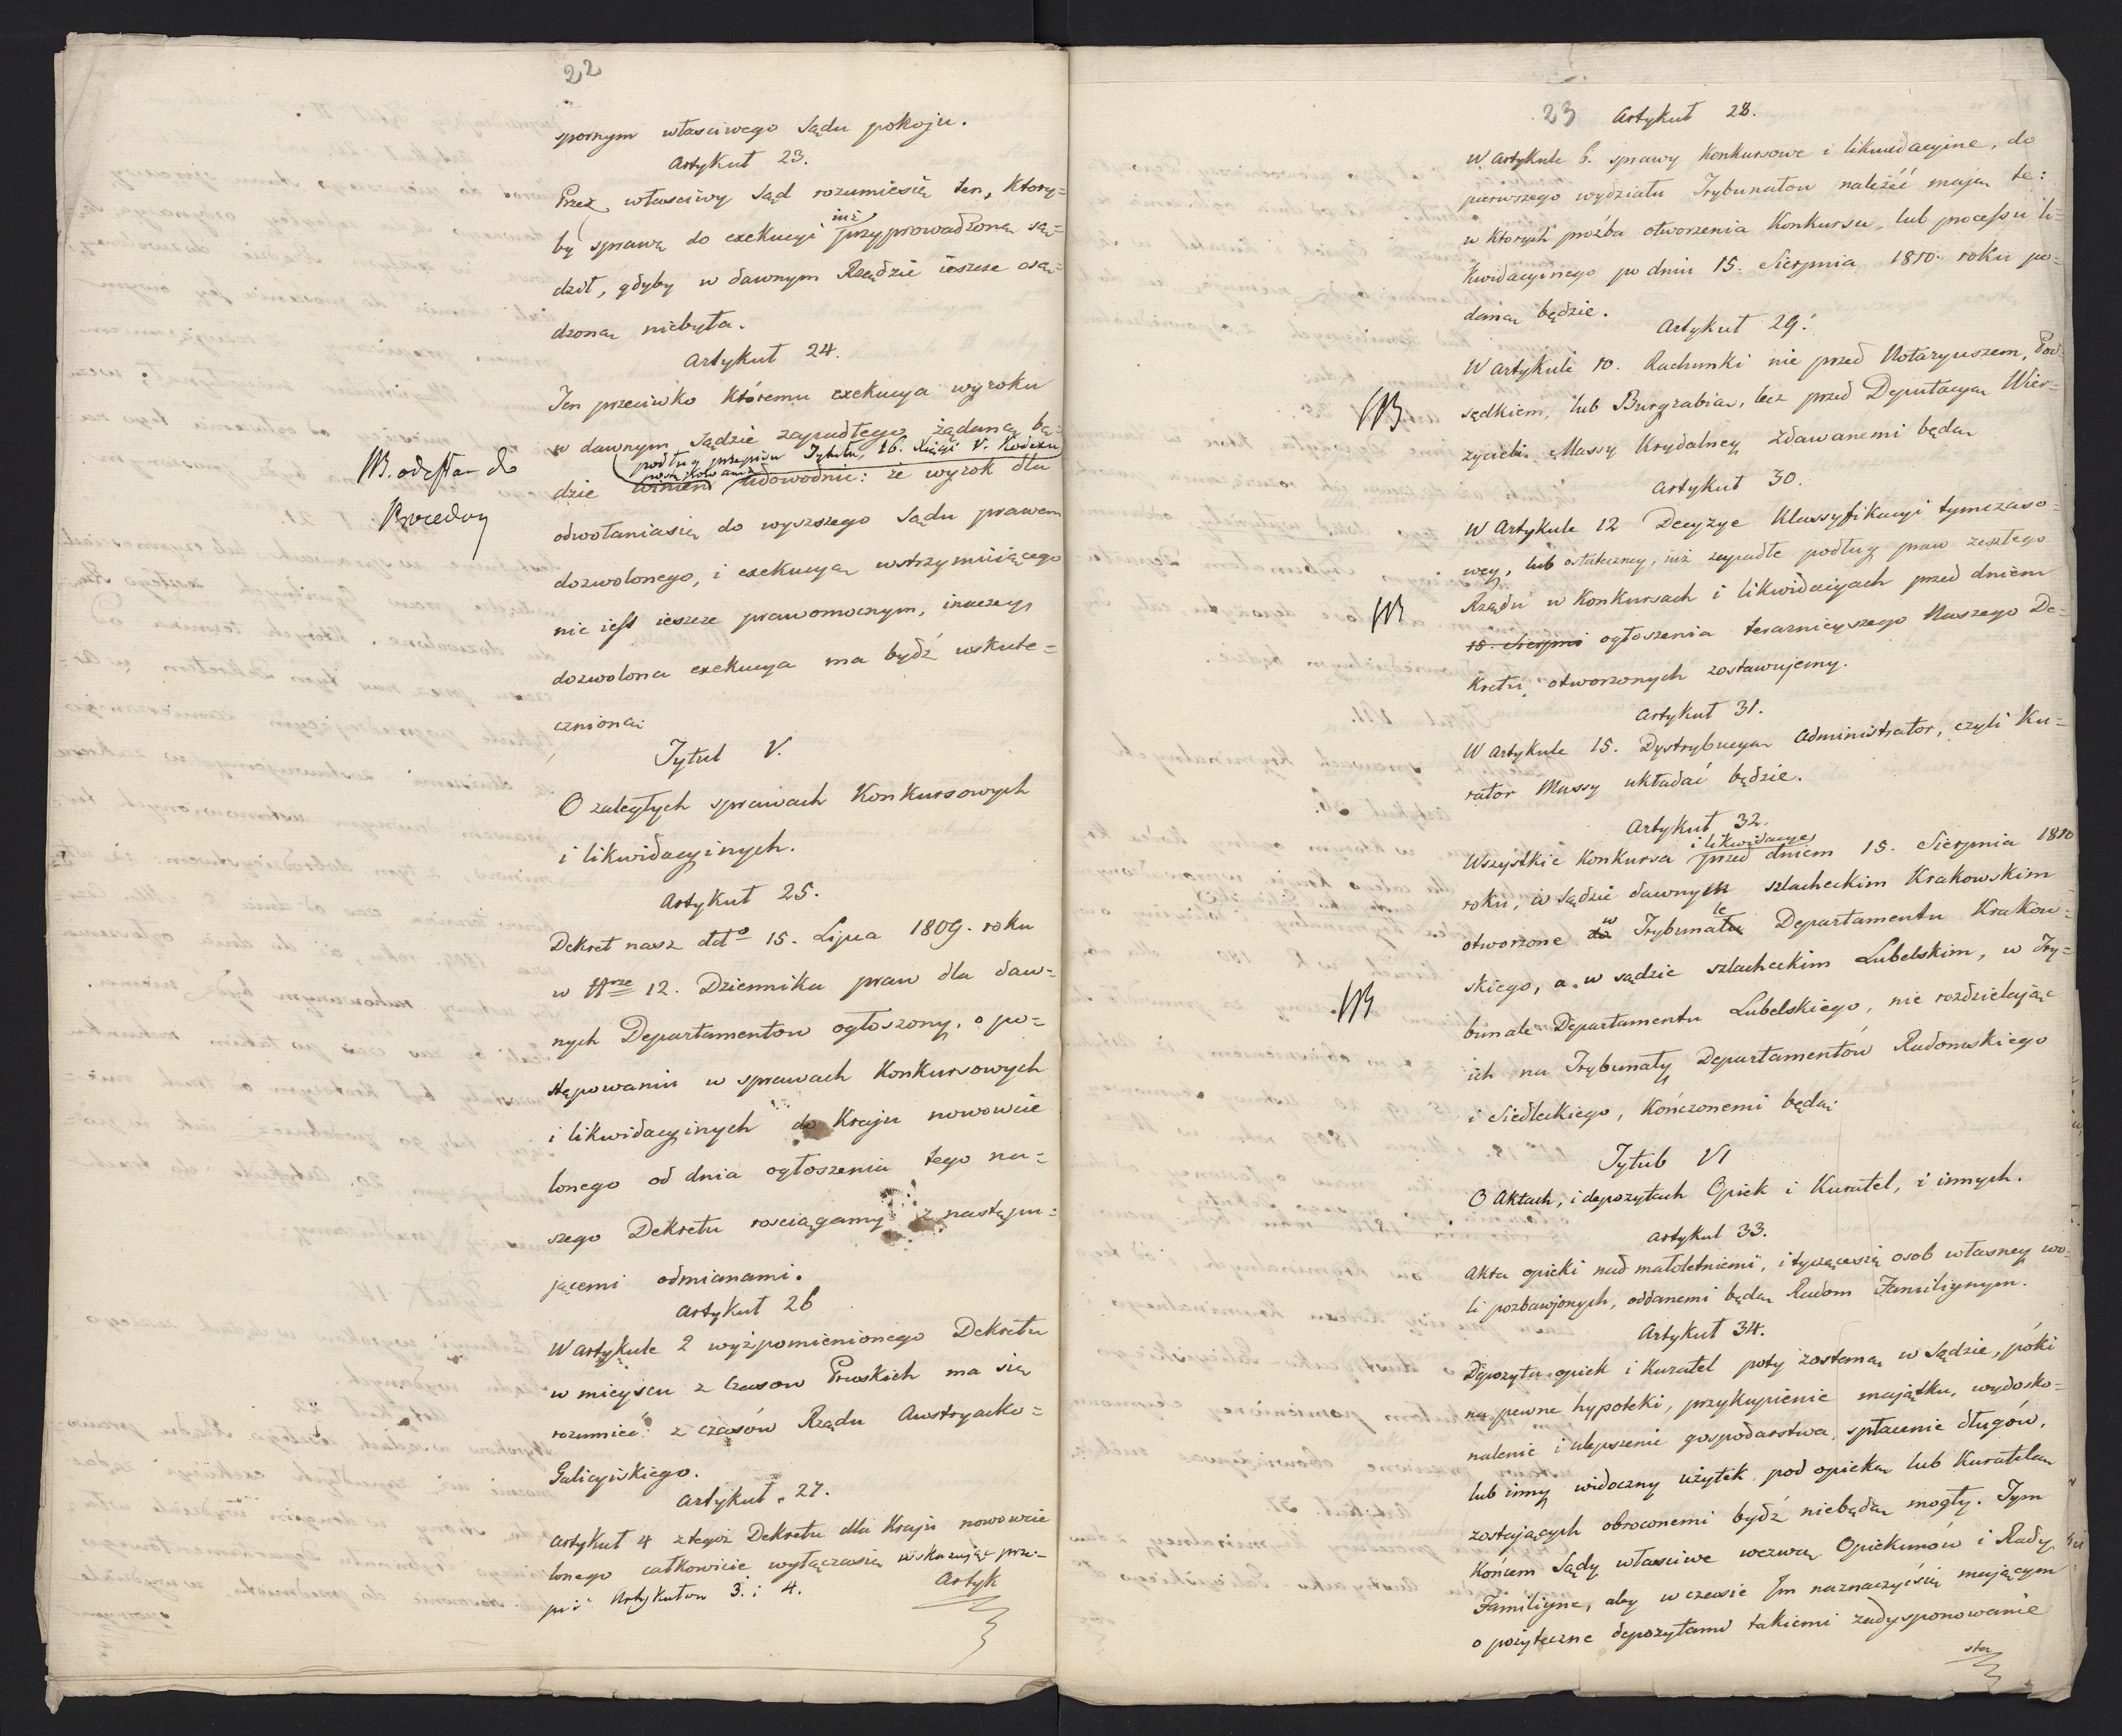 22
spornym własciwego Sądu pokoju.
Artykuł 23.
Przez własciwy Sąd rozumiesię ten, który=
by sprawę do exekucyi już przyprowadzoną są=
dził, gdyby w dawnym Rządzie ieszcze osą=
dzoną niebyła.
Artykuł 24.
Ten przeciwko któremu exekucya wyroku
w dawnym Sądzie zapadłego żądaną bę=
podług przepisu Tytułu, 16. Xięgi V. Kodexu
postępowania
dzie winien udowodnić: że wyrok dla
NB. odesłan do
Procedury
odwołaniasię do wyższego Sądu prawem
dozwolonego, i exekucyą wstrzymuiącego
nie iest ieszcze prawomocnym, inaczey
dozwolona exekucya ma bydź uskute=
czniona.
Tytuł V.
O zaległych sprawach Konkursowych
i likwidacyinych.
Artykuł 25.
Dekret nasz ddto 15. Lipca 1809. roku
w Nrze 12. Dziennika praw dla daw=
nych Departamentow ogłoszony, o po=
stępowaniu w sprawach Konkursowych
i likwidacyinych do Kraju nowowcie
lonego od dnia ogłoszenia tego na=
szego Dekretu rosciągamy z następu=
jącemi odmianami.
Artykuł 26
W artykule 2 wyżpomienionego Dekretu
w mieyscu z czasow Pruskich ma się
rozumieć: z czasów Rządu Austryacko=
Galicyiskiego.
Artykuł 27.
Artykuł 4 ztegoż Dekretu dla Kraju nowowcie
lonego całkowicie wyłączasię wskazując prze=
pis Artykułow 3. i 4.
Artyk
23
Artykuł 28.
W Artykule 6. sprawy Konkursowe i likwidacyine, do
pierwszego wydziału Trybunałow należéć mają te:
w których prozba otworzenia Konkursu, lub processu li=
kwidacyinego po dniu 15. Sierpnia 1810. roku po=
daną będzie.
Artykuł 29.
W artykule 10. Rachunki nie przed Notaryuszem, Pod=
NB
sędkiem, lub Burgrabią, lecz przed Deputacyą Wier=
zycieli Massy Krydalney zdawanemi będą
Artykuł 30.
W Artykule 12 Decyzye Klassyfikacyi tymczaso=
wey, lub ostateczney, iuż zapadłe podług praw zeszłego
NB
Rządu w Konkursach i likwidacyach przed dniem
15. Sierpni ogłoszenia teraznieyszego Naszego De=
kretu, otworzonych zostawujemy.
Artykuł 31.
W Artykule 15. Dystrybucyą Administrator, czyli Ku=
rator Massy układać będzie.
Artykuł 32.
i likwidacye
Wszystkie Konkursa przed dniem 15. Sierpnia 1810
roku, w Sądzie dawnym szlacheckim Krakowskim
w le
otworzone do Trybunału Departamentu Krakow=
NB
skiego, a w sądzie szlacheckim Lubelskim, w Try=
bunale Departamentu Lubelskiego, nie rozdzielając
ich na Trybunały Departamentów Radomskiego
i Siedleckiego, kończonemi będą.
Tytuł VI
O Aktach, i depozytach Opiek i Kuratel, i innych.
Artykuł 33.
Akta opieki nad małoletniemi, i tyczącesię osob własney wo=
li pozbawionych, oddanemi będą Radom Familiynym.
Artykuł 34.
Depozyta opiek i Kuratel poty zostaną w Sądzie, póki
na pewne hypoteki, przykupienie majątku, wydosko=
nalenie i ulepszenie gospodarstwa, spłacenie długów,
lub inny widoczny użytek pod opieką lub Kuratelą
zostających obroconemi bydź niebędą mogły. Tym
Końcem Sądy własciwe wezwą Opiekunów i Rady
Familiyne, aby w czasie Im naznaczyćsię mającym
o pożyteczne depozytami takiemi zadysponowanie
sta